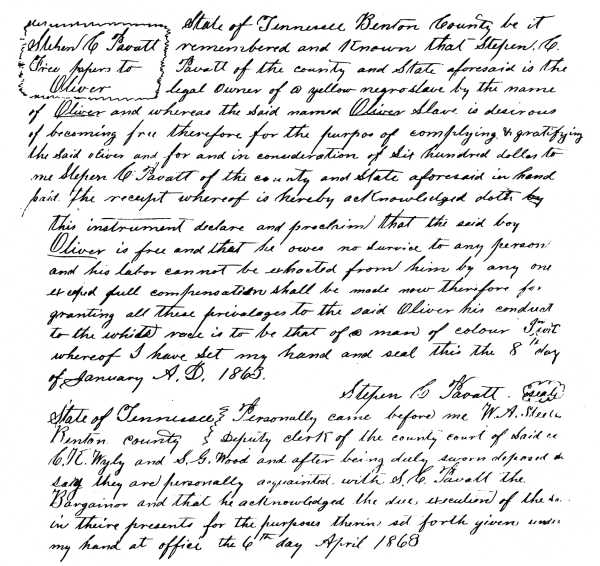 Stehen C Pavatt
Free papers to
Oliver
State of Tennessee Benton County be it
remembered and Known that Stepen. C.
Pavatt of the county and State aforesaid is the
legal owner of a yellow negro slave by the name
of Oliver and whereas the said named Oliver Slave is desirous
of becoming free therefore for the purpos of complying & gratifying
the said oliver and for and in consideration of Six hundred dollas to
me Stepen C Pavatt of the county and State aforesaid in hand
paid. The receipt whereof is hereby acknowledged doth by
this instrument declare and proclaim that the said boy
Oliver is free and that he owes no survice to any person
and his labor cannot be exhacted from him by any one
except full compensation shall be made now therefore for
granting all these privalages to the said Oliver his conduct
to the white race is to be that of a man of colour In wit
whereof I have set my hand and seal this the 8th day
of January A.D. 1863.
Stepen C Pavatt. seal
State of Tennessee } Personally came before me W. A. Steele
Benton county } Deputy clerk of the county court of Said co
C. K. Wyly and S. G. Wood and after being duly sworn deposed &
say they are personally acquainted with S. C. Pavatt the
Bargainor and that he acknowledged the due execution of the
in theire presents for the purposes therin set forth given under
my hand at office the 6th day April 1863